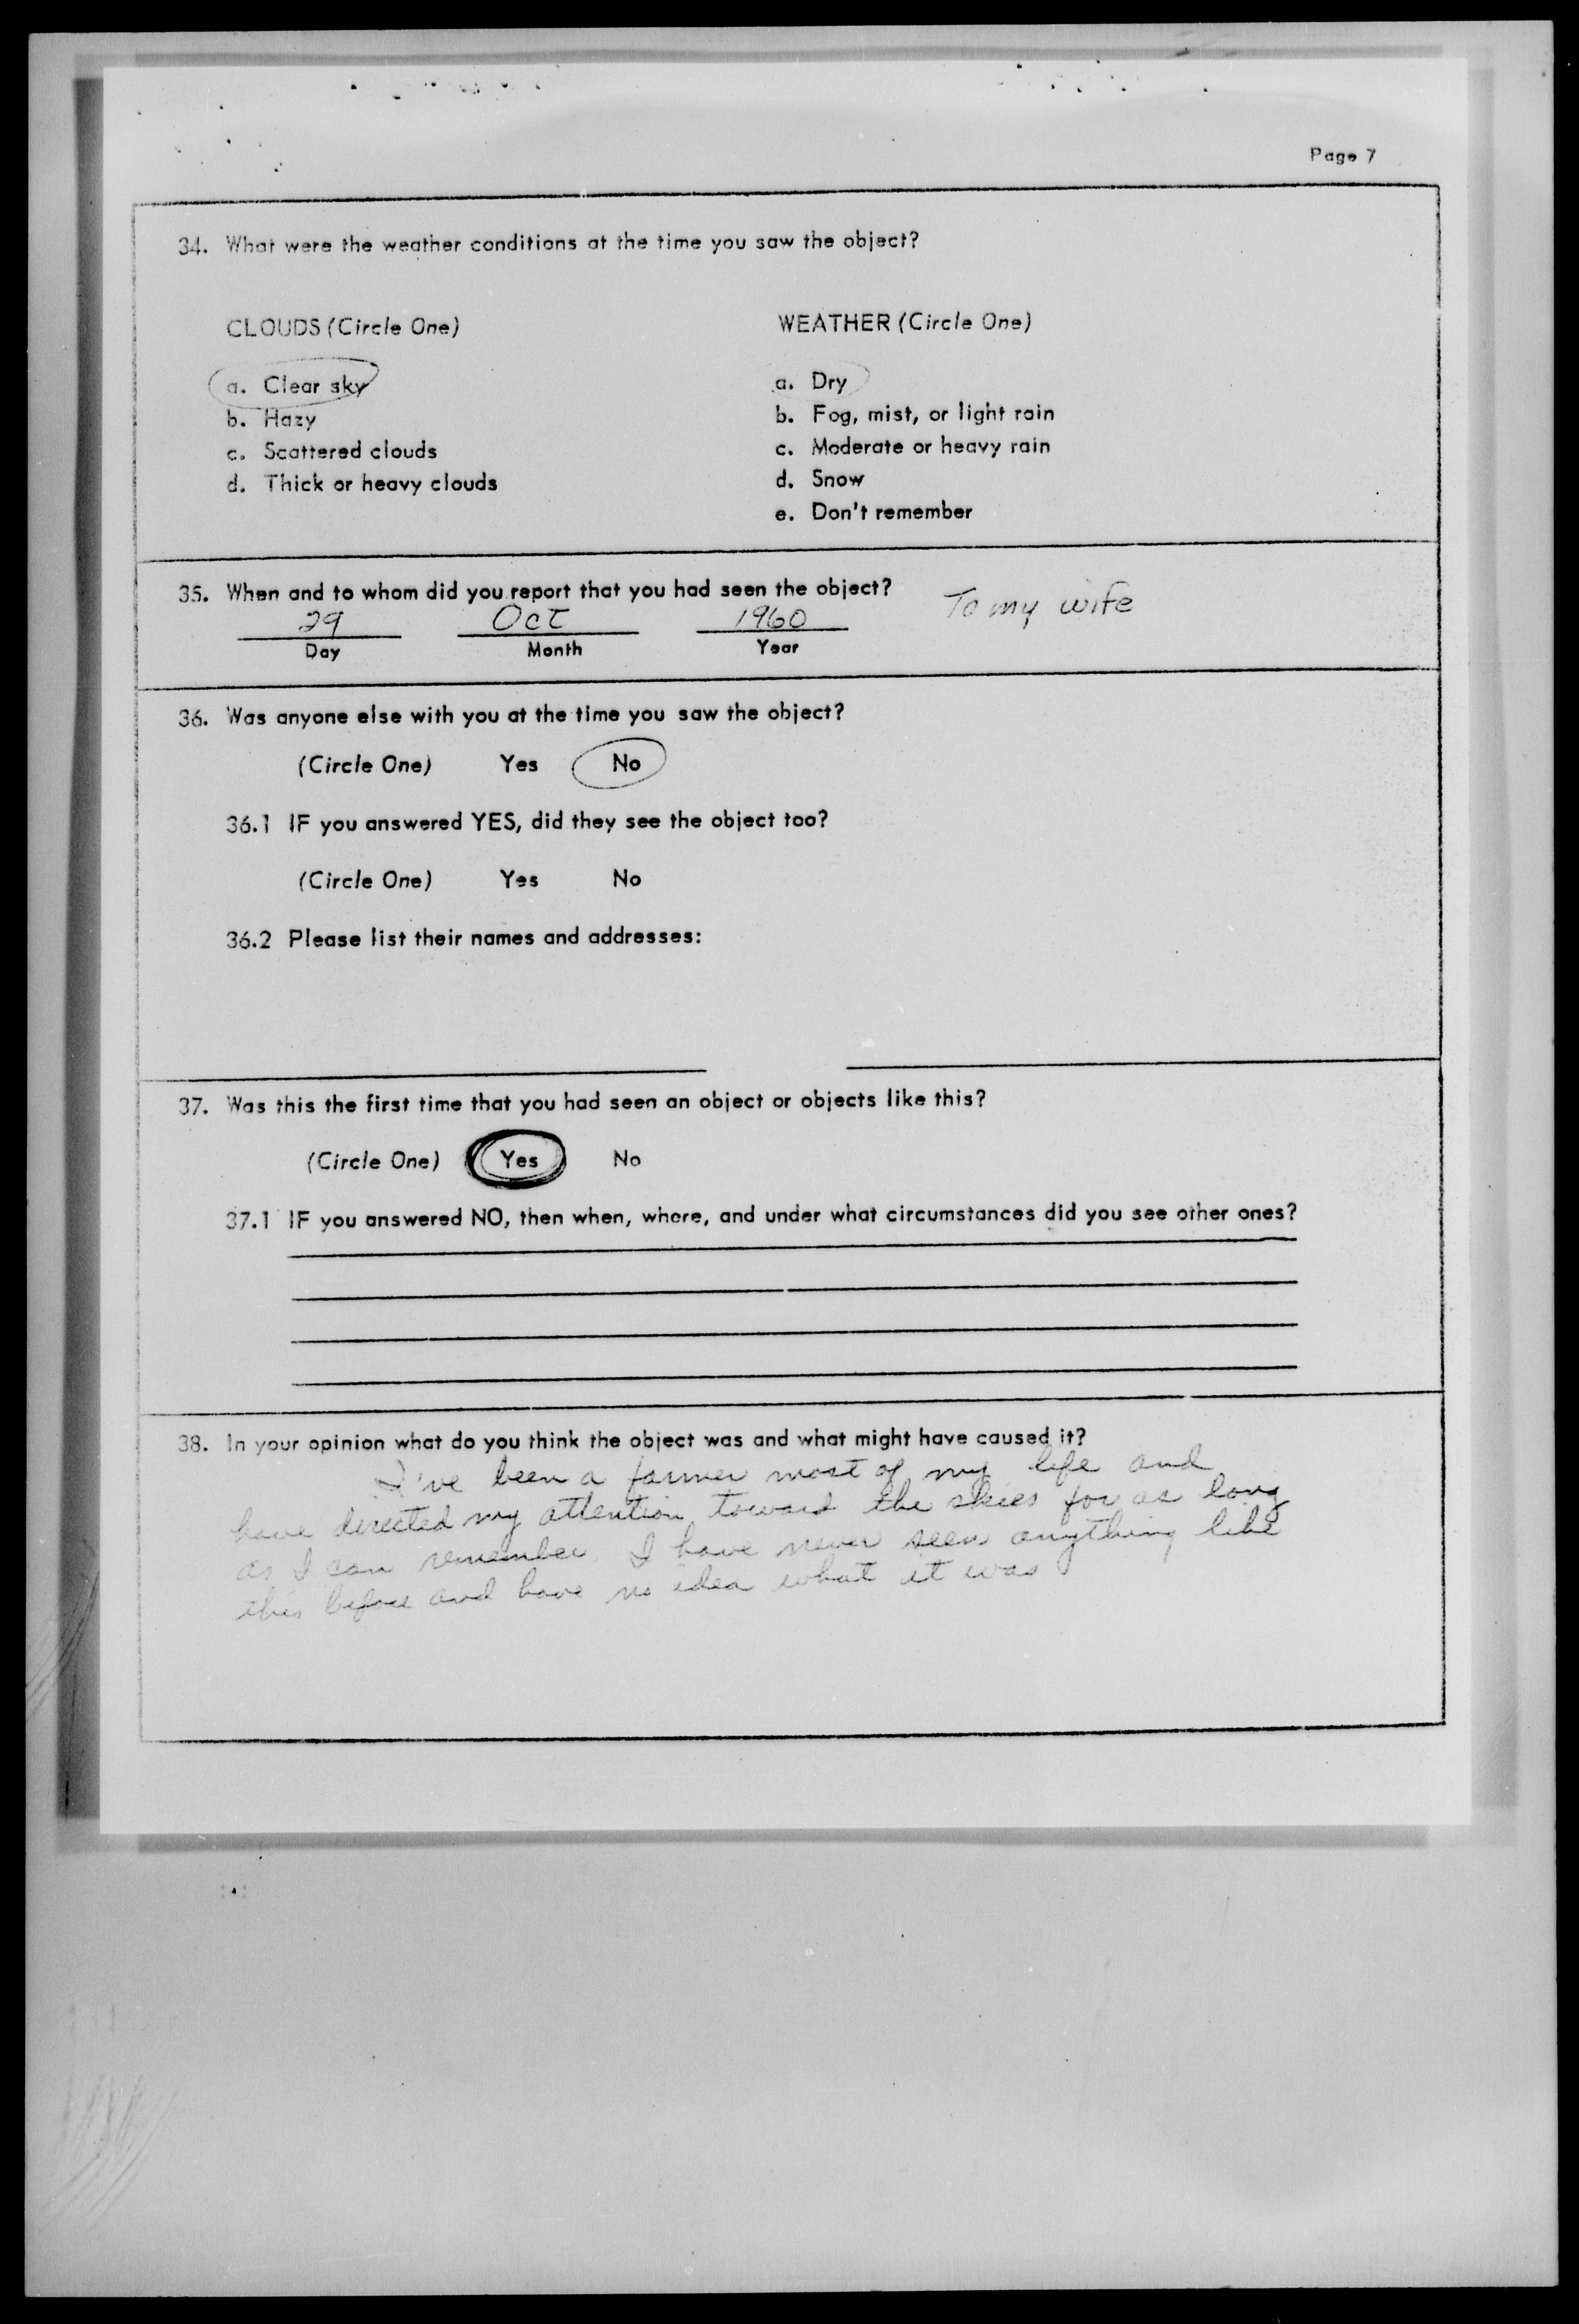 Page 7
34. What were the weather conditions at the time you saw the object?
CLOUDS (Circle One)
a. Clear sky
b. Hazy
c. Scattered clouds
d. Thick or heavy clouds
WEATHER (Circle One)
a. Dry
b. Fog, mist, or light rain
c. Moderate or heavy rain
d. Snow
e. Don't remember
35. When and to whom did you report that you had seen the object?
To my wife
29 Oct 1960
Day Month Year
36. Was anyone else with you at the time you saw the object?
(Circle One) Yes No
36.1 IF you answered YES, did they see the object too?
(Circle One) Yes No
36.2 Please list their names and addresses:
37. Was this the first time that you had seen an object or objects like this?
(Circle One) Yes No
37.1 IF you answered NO, then when, where, and under what circumstances did you see other ones?
38. In your opinion what do you think the object was and what might have caused it?
I've been a farmer most of my life and
have directed my attention toward the skies for as long
as I can remember. I have never seen anything like
this before and have no idea what it was